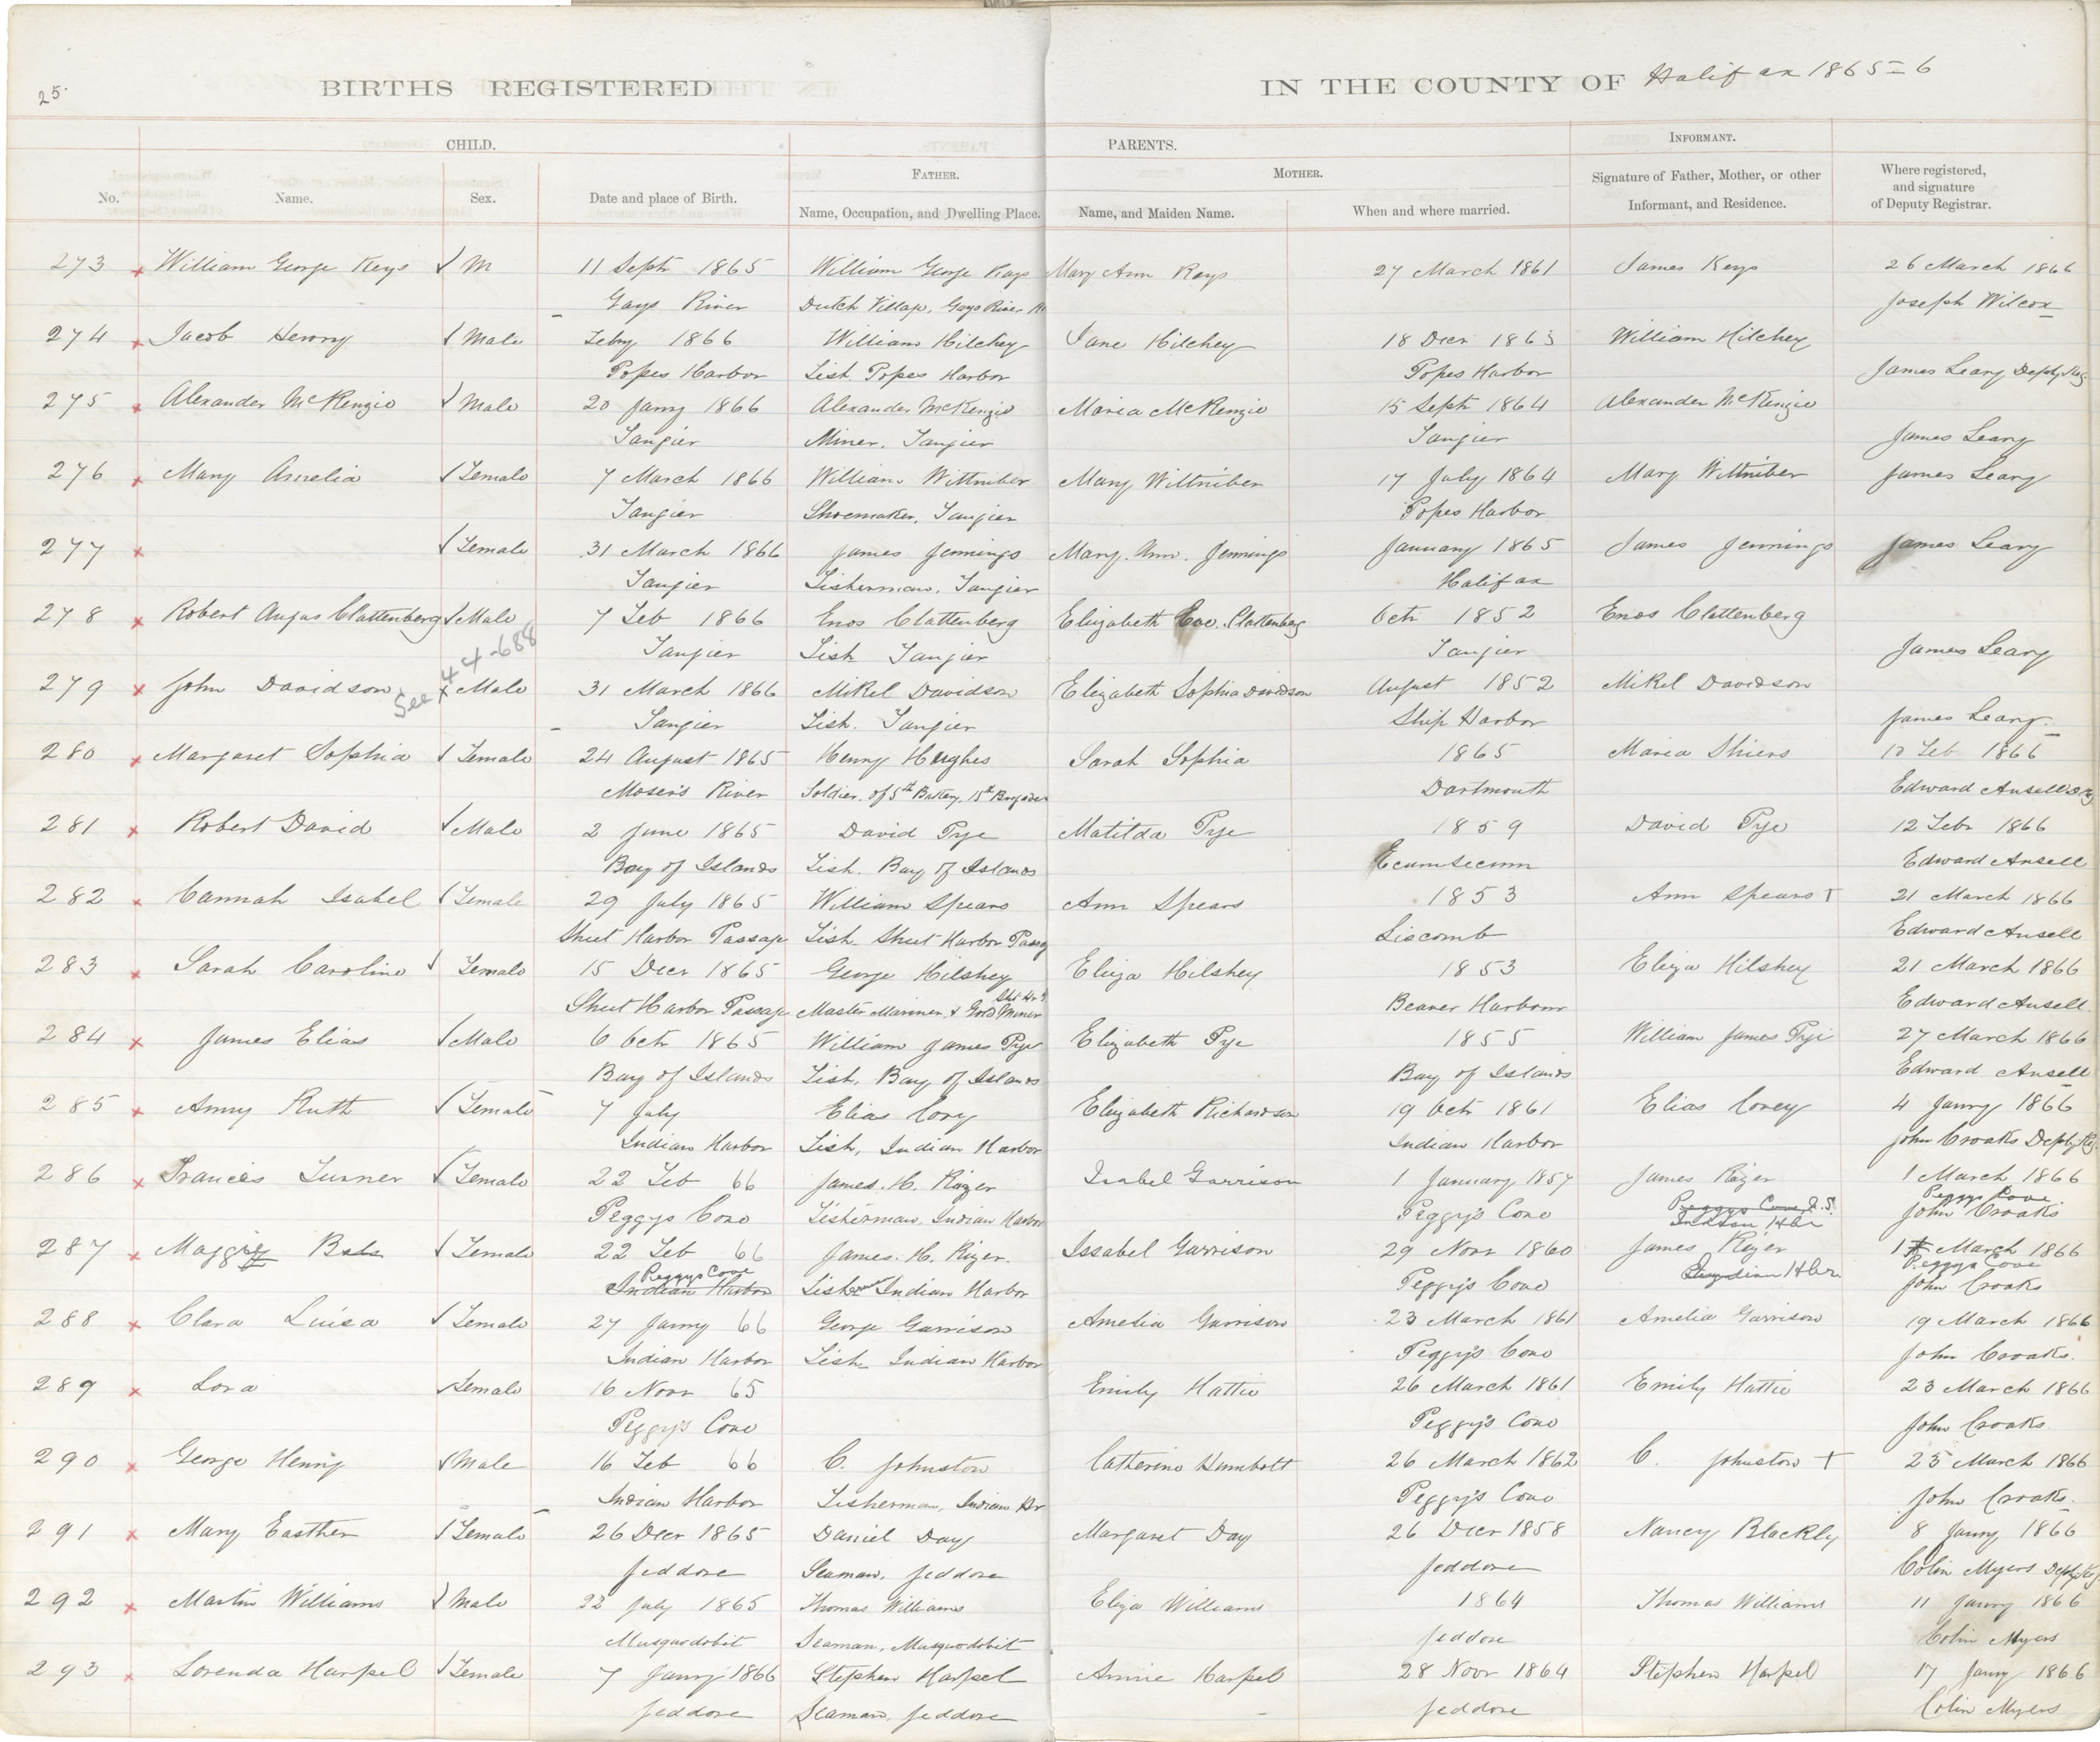 25.
BIRTHS REGISTERED IN THE COUNTY OF Halifax 1865=6
CHILD. PARENTS. INFORMANT.
No. Name. Sex. Date and place of Birth. FATHER. Name, Occupation, and Dwelling Place. MOTHER. Name, and Maiden Name. When and where married. Signature of Father, Mother, or other Informant, and Residence. Where registered, and signature of Deputy Registrar.
273 x William George Keys √ M 11 Septr 1865 William George Keys Mary Ann Keys 27 March 1861 James Keys 26 March 1866
Gays River Dutch Village, Gays River Joseph Wilcox
274 x Jacob Henry √ Male Feby 1866 William Hilchey Jane Hilchey 18 Decr 1865 William Hilchey
Popes Harbor Fish. Popes Harbor Popes Harbor James Leary Depty Reg
275 x Alexander McKenzie √ Male 20 Janry 1866 Alexander McKenzie Maria McKenzie 15 Septr 1864 Alexander McKenzie
Tangier Miner, Tangier Tangier James Leary
276 x Mary Amelia √ Female 7 March 1866 William Wittniber Mary Wittniber 17 July 1864 Mary Wittniber James Leary
Tangier Shoemaker, Tangier Popes Harbor
277 x √ Female 31 March 1866 James Jennings Mary Ann. Jennings January 1865 James Jennings James Leary
Tangier Fisherman, Tangier Halifax
278 x Robert Angus Clattenberg √ Male 7 Feb 1866 Enos Clattenberg Elizabeth Clattenberg Octr 1852 Enos Clattenberg
Tangier Fish Tangier Tangier James Leary
See 44-688
279 x John Davidson x Male 31 March 1866 Mikel Davidson Elizabeth Sophia Davidson August 1852 Mikel Davidson
Tangier Fish. Tangier Ship Harbor James Leary
280 x Margaret Sophia √ Female 24 August 1865 Henry Hughes Sarah Sophia 1865 Maria Shiers 10 Feb 1866
Moser's River Soldier of 5th Battery, 15th Brigade Dartmouth Edward Ansell
281 x Robert David √ Male 2 June 1865 David Pye Matilda Pye 1859 David Pye 12 Febr 1866
Bay of Islands Fish. Bay of Islands Ecumsecum Edward Ansell
282 x Hannah Isabel √ Female 29 July 1865 William Spears Ann Spears 1853 Ann Spears + 21 March 1866
Sheet Harbor Passage Fish. Sheet Harbor Passag Liscomb Edward Ansell
283 x Sarah Caroline √ Female 15 Decr 1865 George Hilshey Eliza Hilshey 1853 Eliza Hilshey 21 March 1866
Sheet Harbor Passage Master Mariner & Gold Miner Beaver Harbour Edward Ansell
284 x James Elias √ Male 6 Octr 1865 William James Pye Elizabeth Pye 1855 William James Pye 27 March 1866
Bay of Islands Fish, Bay of Islands Bay of Islands Edward Ansell
285 x Anny Ruth √ Female 7 July Elias Cory Elizabeth Richardson 19 Octr 1861 Elias Covey 4 Janry 1866
Indian Harbor Fish, Indian Harbor Indian Harbor John Croaks Depty Reg
286 x Francies Turner √ Female 22 Feb 66 James. H. Rizer Isabel Garrison 1 January 1857 James Rizer 1 March 1866
Peggys Cove Fisherman, Indian Harbor Peggy's Cove Indian Hbr Peggys Cove John Croaks
287 x Maggie √ Female 22 Feb 66 James. H. Rizer. Issabel Garrison 29 Novr 1860 James Rizer 1 March 1866
Peggys Cove Indian Harbor Fisherman Indian Harbor Peggy's Cove Indian Hbr. Peggys Cove John Croaks
288 x Clara Luisa √ Female 27 Janry 66 George Garrison Amelia Garrison 23 March 1861 Amelia Garrison 19 March 1866
Indian Harbor Fish_ Indian Harbor Peggy's Cove John Croaks.
289 x Lora √ Female 16 Novr 65 Emily Hattie 26 March 1861 Emily Hattie 23 March 1866
Peggy's Cove Peggy's Cove John Croaks
290 x George Henry √ Male 16 Feb 66 C. Johnston Catherine Humbolt 26 March 1862 C. Johnston + 23 March 1866
Indian Harbor Fisherman, Indian Hr Peggy's Cove John Croaks.
291 x Mary Easther √ Female 26 Decr 1865 Daniel Day Margaret Day 26 Decr 1858 Nancy Blackly 8 Janry 1866
Jeddore Seaman, Jeddore Jeddore Colin Myers Depty Reg
292 x Martin Williams √ Male 22 July 1865 Thomas Williams Eliza Williams 1864 Thomas Williams 11 Janry 1866
Musquodobit Seaman, Musquodobit Jeddore Colin Myers
293 x Lorenda Harpel √ Female 7 Janry 1866 Stephen Harpel Annie Harpel 28 Novr 1864 Stephen Harpel 17 Janry 1866
Jeddore Seaman, Jeddore Jeddore Colin Myers